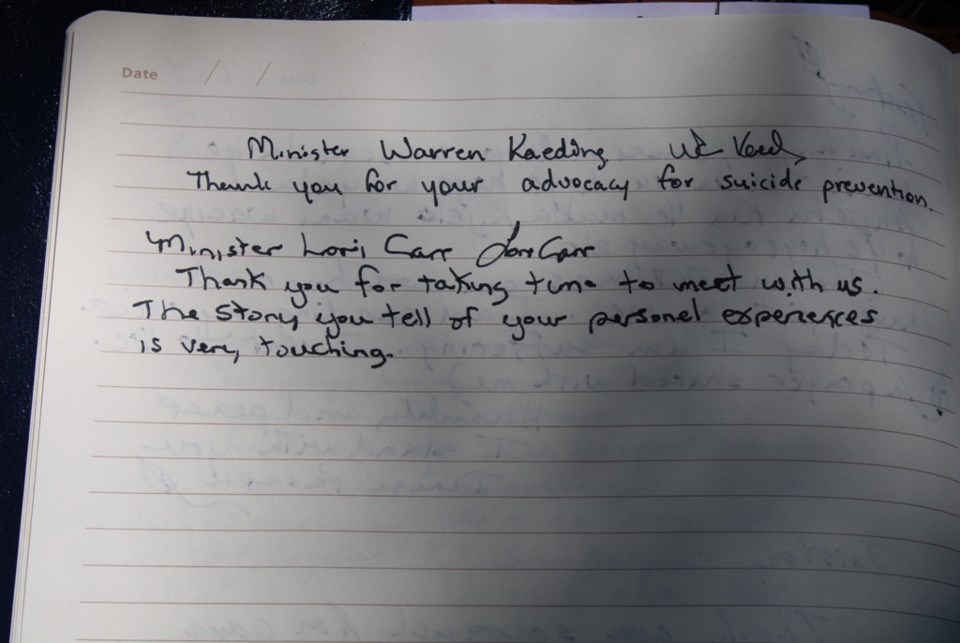 Date / /
Minister Warren Kaeding
Thank you for your advocacy for suicide prevention.
Minister Lori Carr Lori Carr
Thank you for taking time to meet with us.
The story you tell of your personel experiences
is very touching.